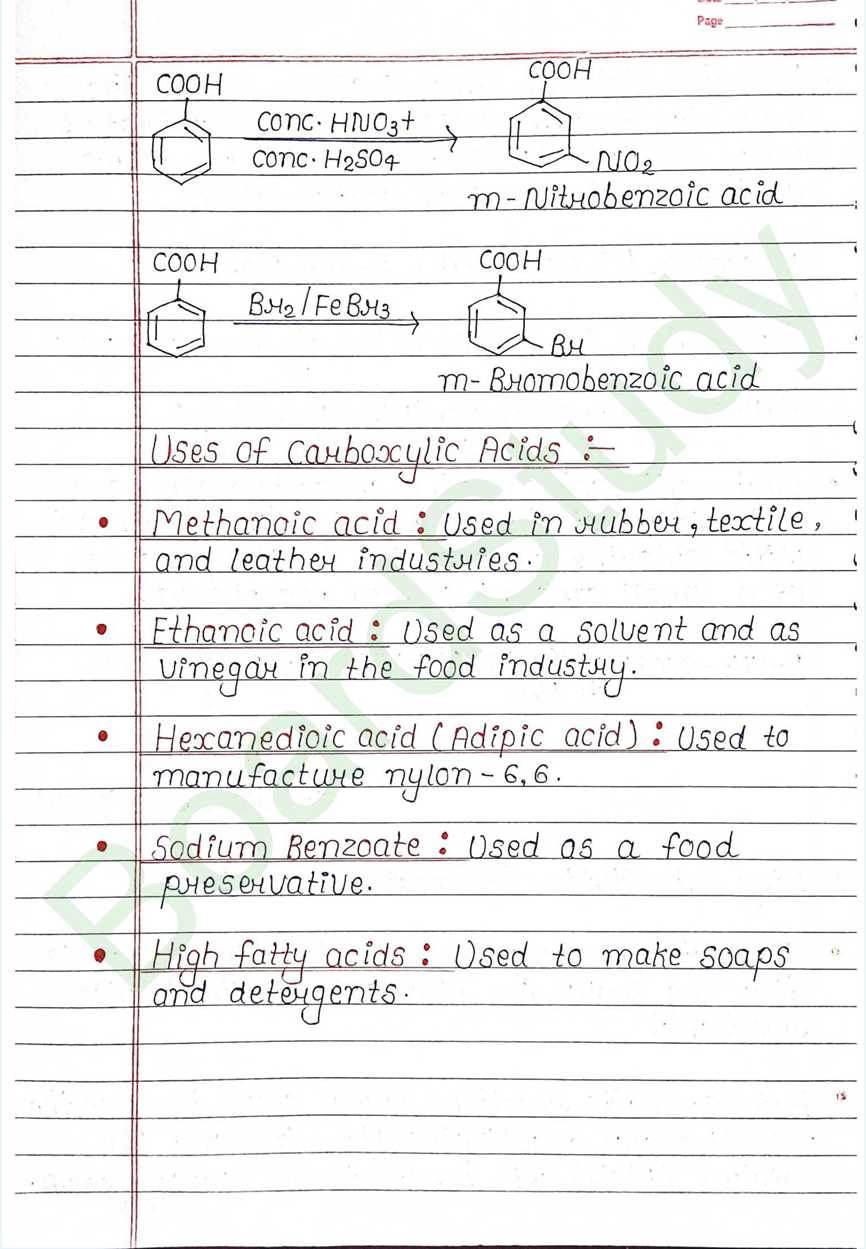 Page
COOH
conc. HNO3+
conc. H2SO4
COOH
NO2
m-Nitrobenzoic acid
COOH
Br2/FeBr3
COOH
Br
m-Bromobenzoic acid
Uses of Carboxcylic Acids :-
• Methanoic acid : Used in rubber, textile,
and leather industries.
• Ethanoic acid : Used as a solvent and as
vinegar in the food industry.
• Hexanedioic acid (Adipic acid) : Used to
manufacture nylon-6,6.
• Sodium Benzoate : Used as a food
preservative.
• High fatty acids : Used to make soaps
and detergents.
BoardStudy